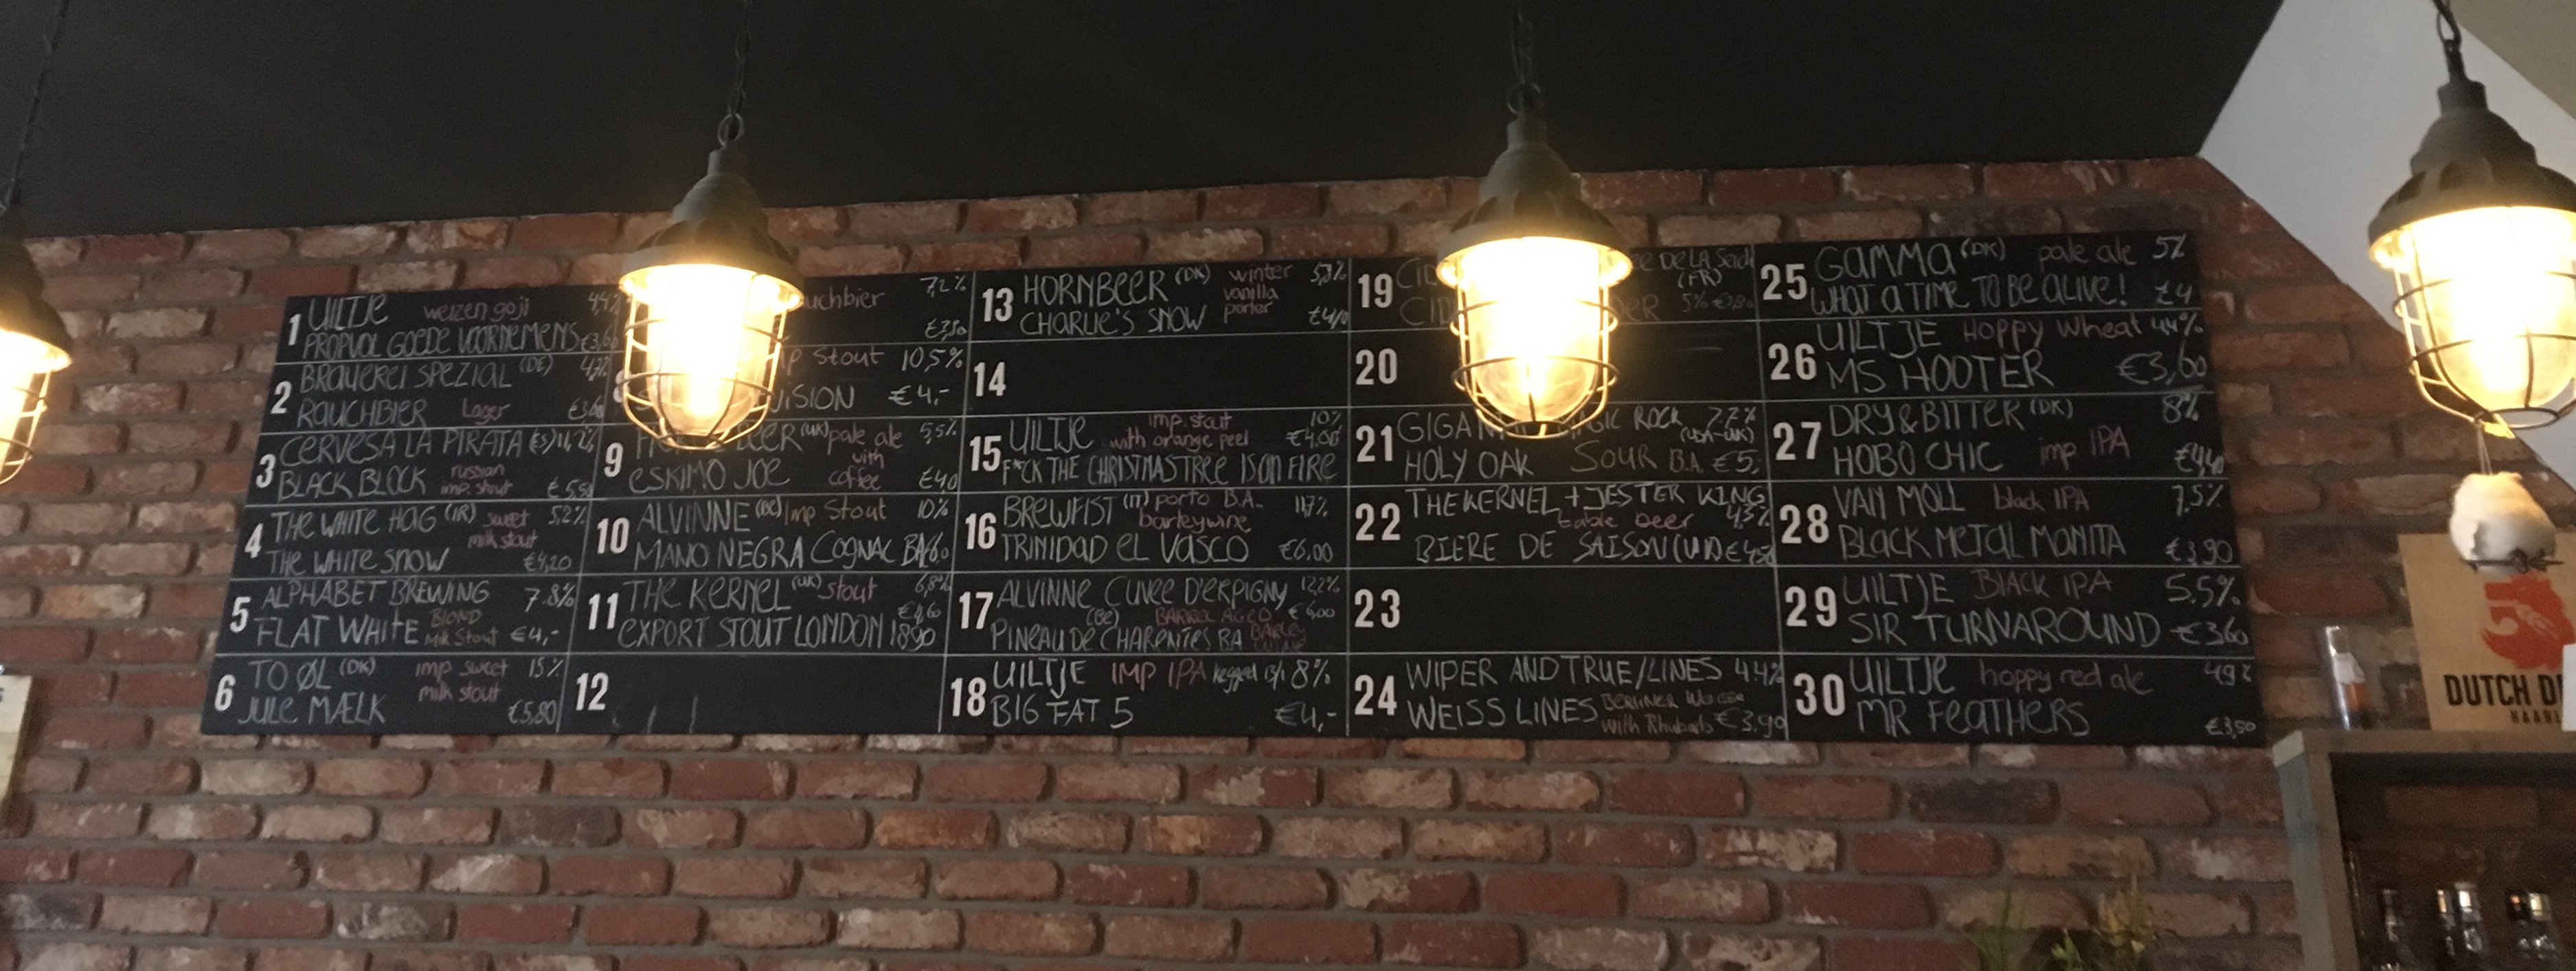 1 UILTJE weizen goji 4,4%
PROPVOL GOEDE VOORNEMENS €3,60
2 BRAUEREI SPEZIAL (DE) 4,7%
RAUCHBIER Lager
3 CERVESA LA PIRATA (ES) 11,2%
BLACK BLOCK russian imp. stout €5,50
4 THE WHITE HAG (IR) sweet milk stout 5,2%
THE WHITE SNOW €4,20
5 ALPHABET BREWING 7.8%
FLAT WHITE BLOND Milk Stout €4,-
6 TO ØL (DK) imp sweet milk stout 15%
JULE MÆLK €5,80
7,2%
€3,80
Stout 10,5%
VISION €4,-
9 BEER (UK) pale ale with coffee 5,5%
ESKIMO JOE €4,0
10 ALVINNE (BE) Imp Stout 10%
MANO NEGRA COGNAC BA
11 THE KERNEL (UK) stout 6,8%
€4,60
EXPORT STOUT LONDON 1890
12
13 HORNBEER (DK) winter vanilla porter 5,3%
CHARLIE'S SNOW
14
15 UILTJE imp. stout with orange peel 10%
€4,00
F*CK THE CHRISTMASTREE IS ON FIRE
16 BREWFIST (IT) porto B.A. barleywine 11,7%
TRINIDAD EL VASCO €6.00
17 ALVINNE CUVEE D'ERPIGNY 12,2%
(BE) BARREL AGED €6,00
PINEAU DE CHARENTES BA BARLEY WINE
18 UILTJE IMP IPA kegged 8%
BIG FAT 5 €4,-
19 DE LA
(FR)
5%
20
21 ROCK 7.2%
(USA-UK)
HOLY OAK SOUR B.A. €5,
22 THE KERNEL + JESTER KING
table beer 4,3%
BIERE DE SAISON (UK)
23
24 WIPER AND TRUE/LINES 4.4%
WEISS LINES BERLINER
With Rhubarb €3,90
25 GAMMA (DK) pale ale 5%
WHAT A TIME TO BE ALIVE! €4
26 UILTJE Hoppy Wheat 4,4%
MS HOOTER €3,60
27 DRY & BITTER (DK) 8%
HOBO CHIC imp IPA €4,40
28 VAN MOLL black IPA 7.5%
BLACK METAL MANITA €3,90
29 UILTJE BLACK IPA 5.5%
SIR TURNAROUND €3,60
30 UILTJE hoppy red ale 4,9%
MR FEATHERS €3,50
DUTCH